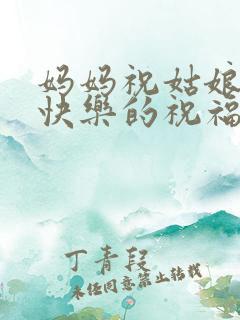 妈妈祝姑娘
快樂的祝福
丁青段
未经同意禁止转载